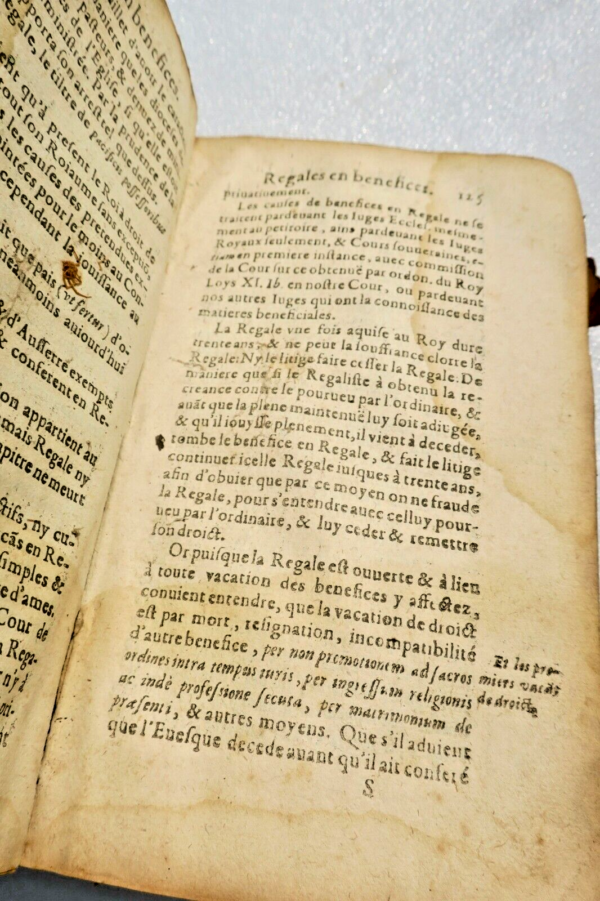 en benefices.
d'auoir la cause
quelles dioceses
Pasteurs, & dernier de mort
de l'Eglise, si qu'elle estoit
administrée. Par la prudence de la
apporta son arrest tel que dessus.
egale, le tiltre de Pacificis Possessoribus
qu'à present le Roi à droit de
tout son Roiaume sans exceptiō,
les causes des pretenduës ex-
ointées pour le moins au Con-
cependant la iouissance au
it que pais (vt ferunt) d'o-
neãmoins aujourd'hui
& d'Aussetre exempte,
& conferent en Re-
on appartient au
mais Regale ny
apitre ne meurt
ctifs, ny cu-
cās en Re-
simples &
e d'ames,
Cour de
n Rega-
n'y à
Regales en benefices. 125
priuatiuement.
Les causes de benefices en Regale ne se
traitent pardeuant les Iuges Eccles. mesme-
ment au petitoire, ains pardeuant les Iuges
Royaux seulement, & Cours souueraines, e-
en premiere instance, auec commission
de la Cour sur ce obtenuë par ordon. du Roy
Loys XI. 1b. en nostre Cour, ou pardeuant
nos autres Iuges qui ont la connoissance des
matieres beneficiales.
La Regale vne fois aquise au Roy dure
trente ans, & ne peut la souffrance clorre la
Regale: Ny le litige faire cesser la Regale. De
maniere que si le Regaliste à obtenu la re-
creance contre le pourueu par l'ordinaire, &
auāt que la plene maintenuë luy soit adiugée,
& qu'il iouysse plenement, il vient à deceder,
tombe le benefice en Regale, & fait le litige
continuer icelle Regale iusques à trente ans,
afin d'obuier que par ce moyen on ne fraude
la Regale, pour s'entendre auec celluy pour-
ueu par l'ordinaire, & luy ceder & remettre
son droict.
Or puisque la Regale est ouuerte & à lieu
à toute vacation des benefices y affectez,
conuient entendre, que la vacation de droict
est par mort, resignation, incompatibilité
d'autre benefice, per non promotionem ad sacros
ordines intra tempus iuris, per ingressum religionis
ac indè professione secuta, per matrimonium de
præsenti, & autres moyens. Que s'il aduient
que l'Euesque decede auant qu'il ait conferé
S
Et les pre-
miers
de droict